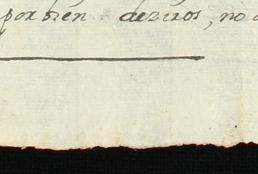 por bien deziros, no